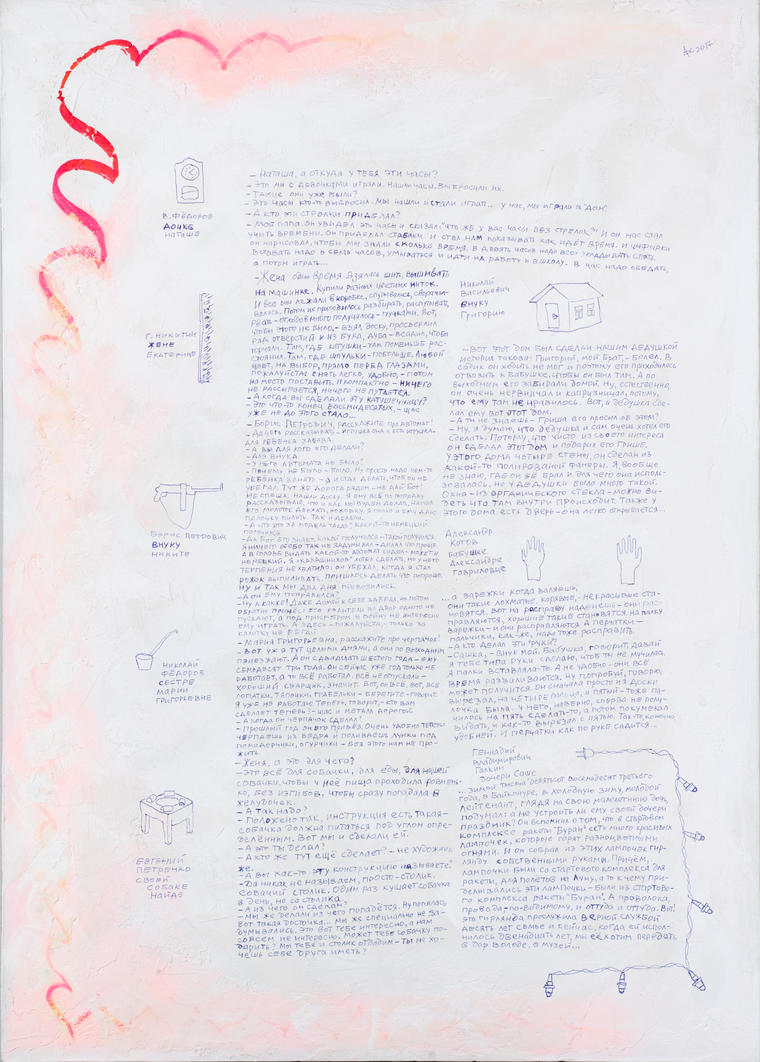 АК 2017
В. Фёдоров
дочке
Наташе
— Наташа, а откуда у тебя эти часы?
— Это мы с девочками играли. Нашли часы. Выбросили их.
— Такие они уже были?
— Это часы кто-то выбросил. Мы нашли и стали играть... у нас, мы играли в "дом".
— А кто эти стрелки приделал?
— Мой папа. Он увидел эти часы и сказал: "Что же у вас часы без стрелок?" И он нас стал
учить времени. Он приделал стрелки, и стал нам показывать как идёт время. И циферки
он нарисовал, чтобы мы знали сколько время. В девять часов надо всех укладывать спать,
вставать надо в семь часов, умываться и идти на работу и в школу. В час надо обедать,
а потом играть...
Г. Никитин
жене
Екатерине
— Жена одно время взялась шить, вышивать
на машинке. Купили разных цветных ниток.
И все они лежали в коробке, спутывались, сворачи-
вались. Потом их приходилось разбирать, распутывать,
рвать – отходов много получалось – пучками. Вот,
чтобы этого не было, – взял доску, просверлил
ряд отверстий и из бука, дуба – всадил, чтобы
торчали. Там, где катушки – там поменьше рас-
стояния. Там, где шпульки – побольше. Любой
цвет, на выбор, прямо перед глазами,
пожалуйста: снять легко, удобно, – потом
на место поставить. И компактно – ничего
не рассыпается, ничего не путается.
— А когда вы сделали эту катушечницу?
— Это что-то конец восьмидесятых, – щас
уже не до этого стало...
Борис Петрович
внуку
Никите
— Борис Петрович, расскажите про автомат!
— Да чего рассказывать – игрушка она и есть игрушка.
Для ребёнка забава.
— А вы для кого его делали?
— Для внука.
— У него автомата не было?
— Почему не было – было. Ну просто надо чем-то
ребёнка занять – а и стал делать, чтоб он не
убегал. Тут же дорога рядом – не дай Бог!
Не спеша. Нашли доску. Я ему всё по порядку
рассказываю, что и как мы будем делать, научил
его молоток держать, ножовку. Я пилю и ему даю
палочку пилить. Так и делали.
— А что это за модель такая? Какой-то немецкий
получился.
— Да Бог его знает, какой получился – такой получился.
Я ничего особо так не задумывал – делал что проще.
А в голове видать какой-то автомат сидел – может и
немецкий. Я «калашников» хотел сделать, но у него
терпения не хватило: он убежал, когда я стал
рожок выпиливать, пришлось делать что попроще.
Ну и так мы два дня провозились.
— А он ему понравился?
— Ну а как же! Даже домой к себе забрал, но потом
обратно принёс: его родители во двор одного не
пускают, а под присмотром в войну не интересно
ему играть. А здесь – пожалуйста, – только за
калитку не бегай.
Николай
Фёдоров
сестре
Марии
Григорьевне
— Мария Григорьевна, расскажите про черпачок!
— Вот уж я тут целыми днями, а они по выходным
приезжают. А он с двадцать шестого года – ему
семьдесят три года. Он сейчас уже год только не
работает, а то всё работал, всё не отпускали –
хороший сварщик, значит. Вот, он всё, вот, все
лопатки, тяпочки, грабельки – берегите – говорит.
Я уже не работаю теперь, говорит, – кто вам
сделает теперь? – щас и металл дорогой.
— А когда он черпачок сделал?
— Прошлый год он его привёз. Очень удобно теперь
черпаешь из ведра и поливаешь лунки под
помидорчики, огурчики – без этого нам не про-
жить.
Евгений
Петренко
своей
собаке
Найде
— Женя, а это для чего?
— Это всё для собачки, для еды, для нашей
собачки, чтобы у неё пища проходила ровнень-
ко, без изгибов, чтобы сразу попадала в
желудочек.
— А так надо?
— Положено так, инструкция есть такая –
собачка должна питаться под углом опре-
делённым. Вот мы и сделали ей.
— А это ты делал?
— А кто же тут ещё сделает? – не художник
же.
— А вы как-то эту конструкцию называете?
— Да никак не называем, просто – столик.
Собачий столик. Один раз кушает собачка
в день, но со столика.
— А из чего он сделан?
— Мы же делали из чего попадётся. Ну попалась
вот такая досточка... Мы же специально не за-
думывались, это вот тебе интересно, а нам
совсем не интересно. Может тебе собачку по-
дарить? Мы тебе и столик отдадим – ты не хо-
чешь себе друга иметь?
Николай
Васильевич
внуку
Григорию
— Вот этот дом был сделан нашим дедушкой.
История такова: Григорий, мой брат, – болел. В
садик он ходить не мог и поэтому его приходилось
отвозить к бабушке, чтобы он был там, а по
выходным его забирали домой. Ну, естественно,
он очень нервничал и капризничал, потому,
что ему там не нравилось. Вот, и дедушка сде-
лал ему вот этот дом.
— А ты не знаешь – Гриша его просил об этом?
— Ну, я думаю, что дедушка и сам очень хотел его
сделать. Потому, что чисто из своего интереса
он сделал этот дом и подарил его Грише.
У этого дома четыре стены, он сделан из
какой-то полированой фанеры. Я, вообще
не знаю, где он её брал и для чего она исполь-
зовалась, но у дедушки было много такой.
Окна – из органического стекла – можно ви-
деть что там внутри происходит. Также у
этого дома есть дверь – она легко открывается...
Александр
Котов
бабушке
Александре
Гавриловне
... а варежки когда валяешь,
они такие лохматые, корявые, – некрасивые ста-
новятся. Вот на расправу наденешь – они рас-
правляются, хорошие такие становятся. На палку
варежки – и они расправляются. А перчатки –
пальчики, как-же, надо тоже расправить.
— А кто делал эти "руки"?
— Сашка, – внук мой. Бабушка, говорит, давай
я тебе типа руки сделаю, чтоб ты не мучилась.
А палки вставляла-то. А не удобно – они всё
время разваливаются. Ну попробуй, говорю,
может получится. Он сначала просто из доски
вырезал, на четыре пальца, а пятый – тоже па-
лочка была. У него, наверно, сперва не полу-
чилось на пять сделать-то, а потом покумекал
видать, и как-то вырезал с пятью. Так-то, конечно,
удобней. И перчатки как по руке садится...
Геннадий
Владимирович
Галкин
дочери Саше
... зимой тысяча девятьсот восемьдесят третьего
года, в Байконуре, в холодную зиму, молодой
лейтенант, глядя на свою малолетнюю дочь,
подумал: а не устроить ли ему своей дочери
праздник? Он вспомнил о том, что в стартовом
комплексе ракеты "Буран" есть много красивых
лампочек, которые горят разноцветными
огнями. И он собрал из этих лампочек гир-
лянду собственными руками. Причём,
лампочки были со стартового комплекса для
ракеты, для полётов на Луну, а то к чему при-
делывались эти лампочки – были из стартово-
го комплекса ракеты "Буран". А проволока,
провода – по-видимому, и оттуда и оттуда. Вот!
Эта гирлянда прослужила верной службой
десять лет семье и сейчас, когда ей испол-
нилось двенадцать лет, мы её хотим передать
в дар Володе, в музей...